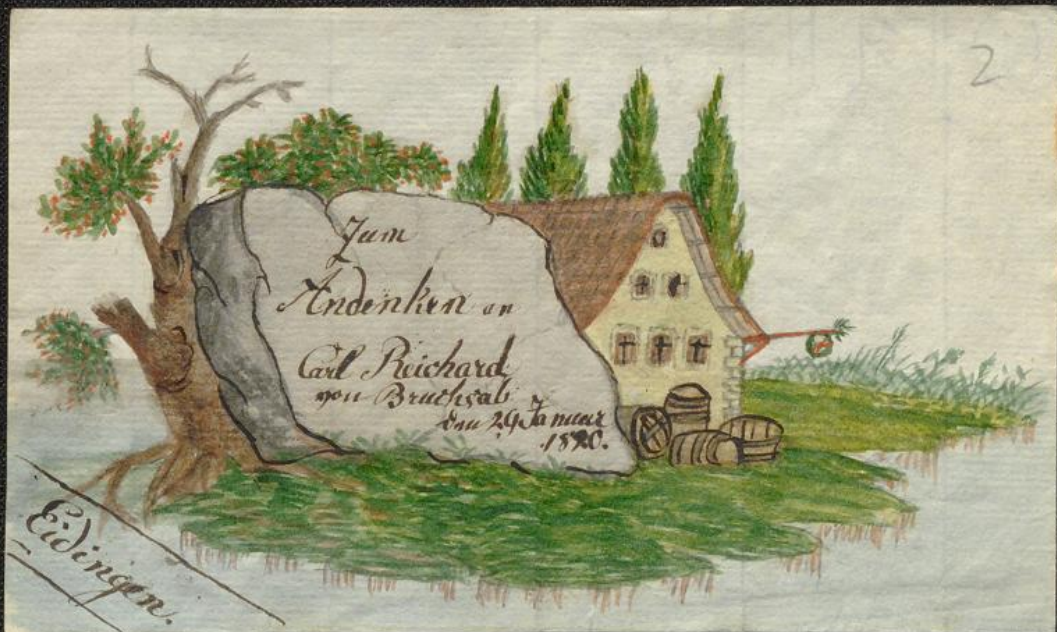 2
Zum
Andenken an
Carl Reichard
von Bruchsal
den Januar
1820.
Eidingen.